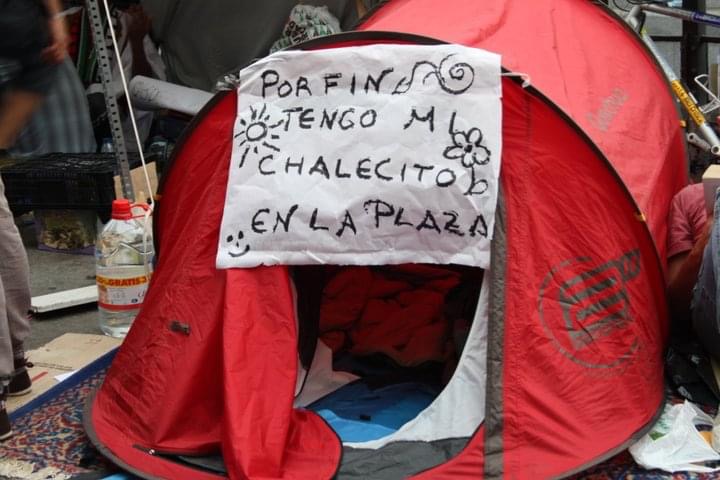 POR FIN
TENGO MI
CHALECITO
EN LA PLAZA